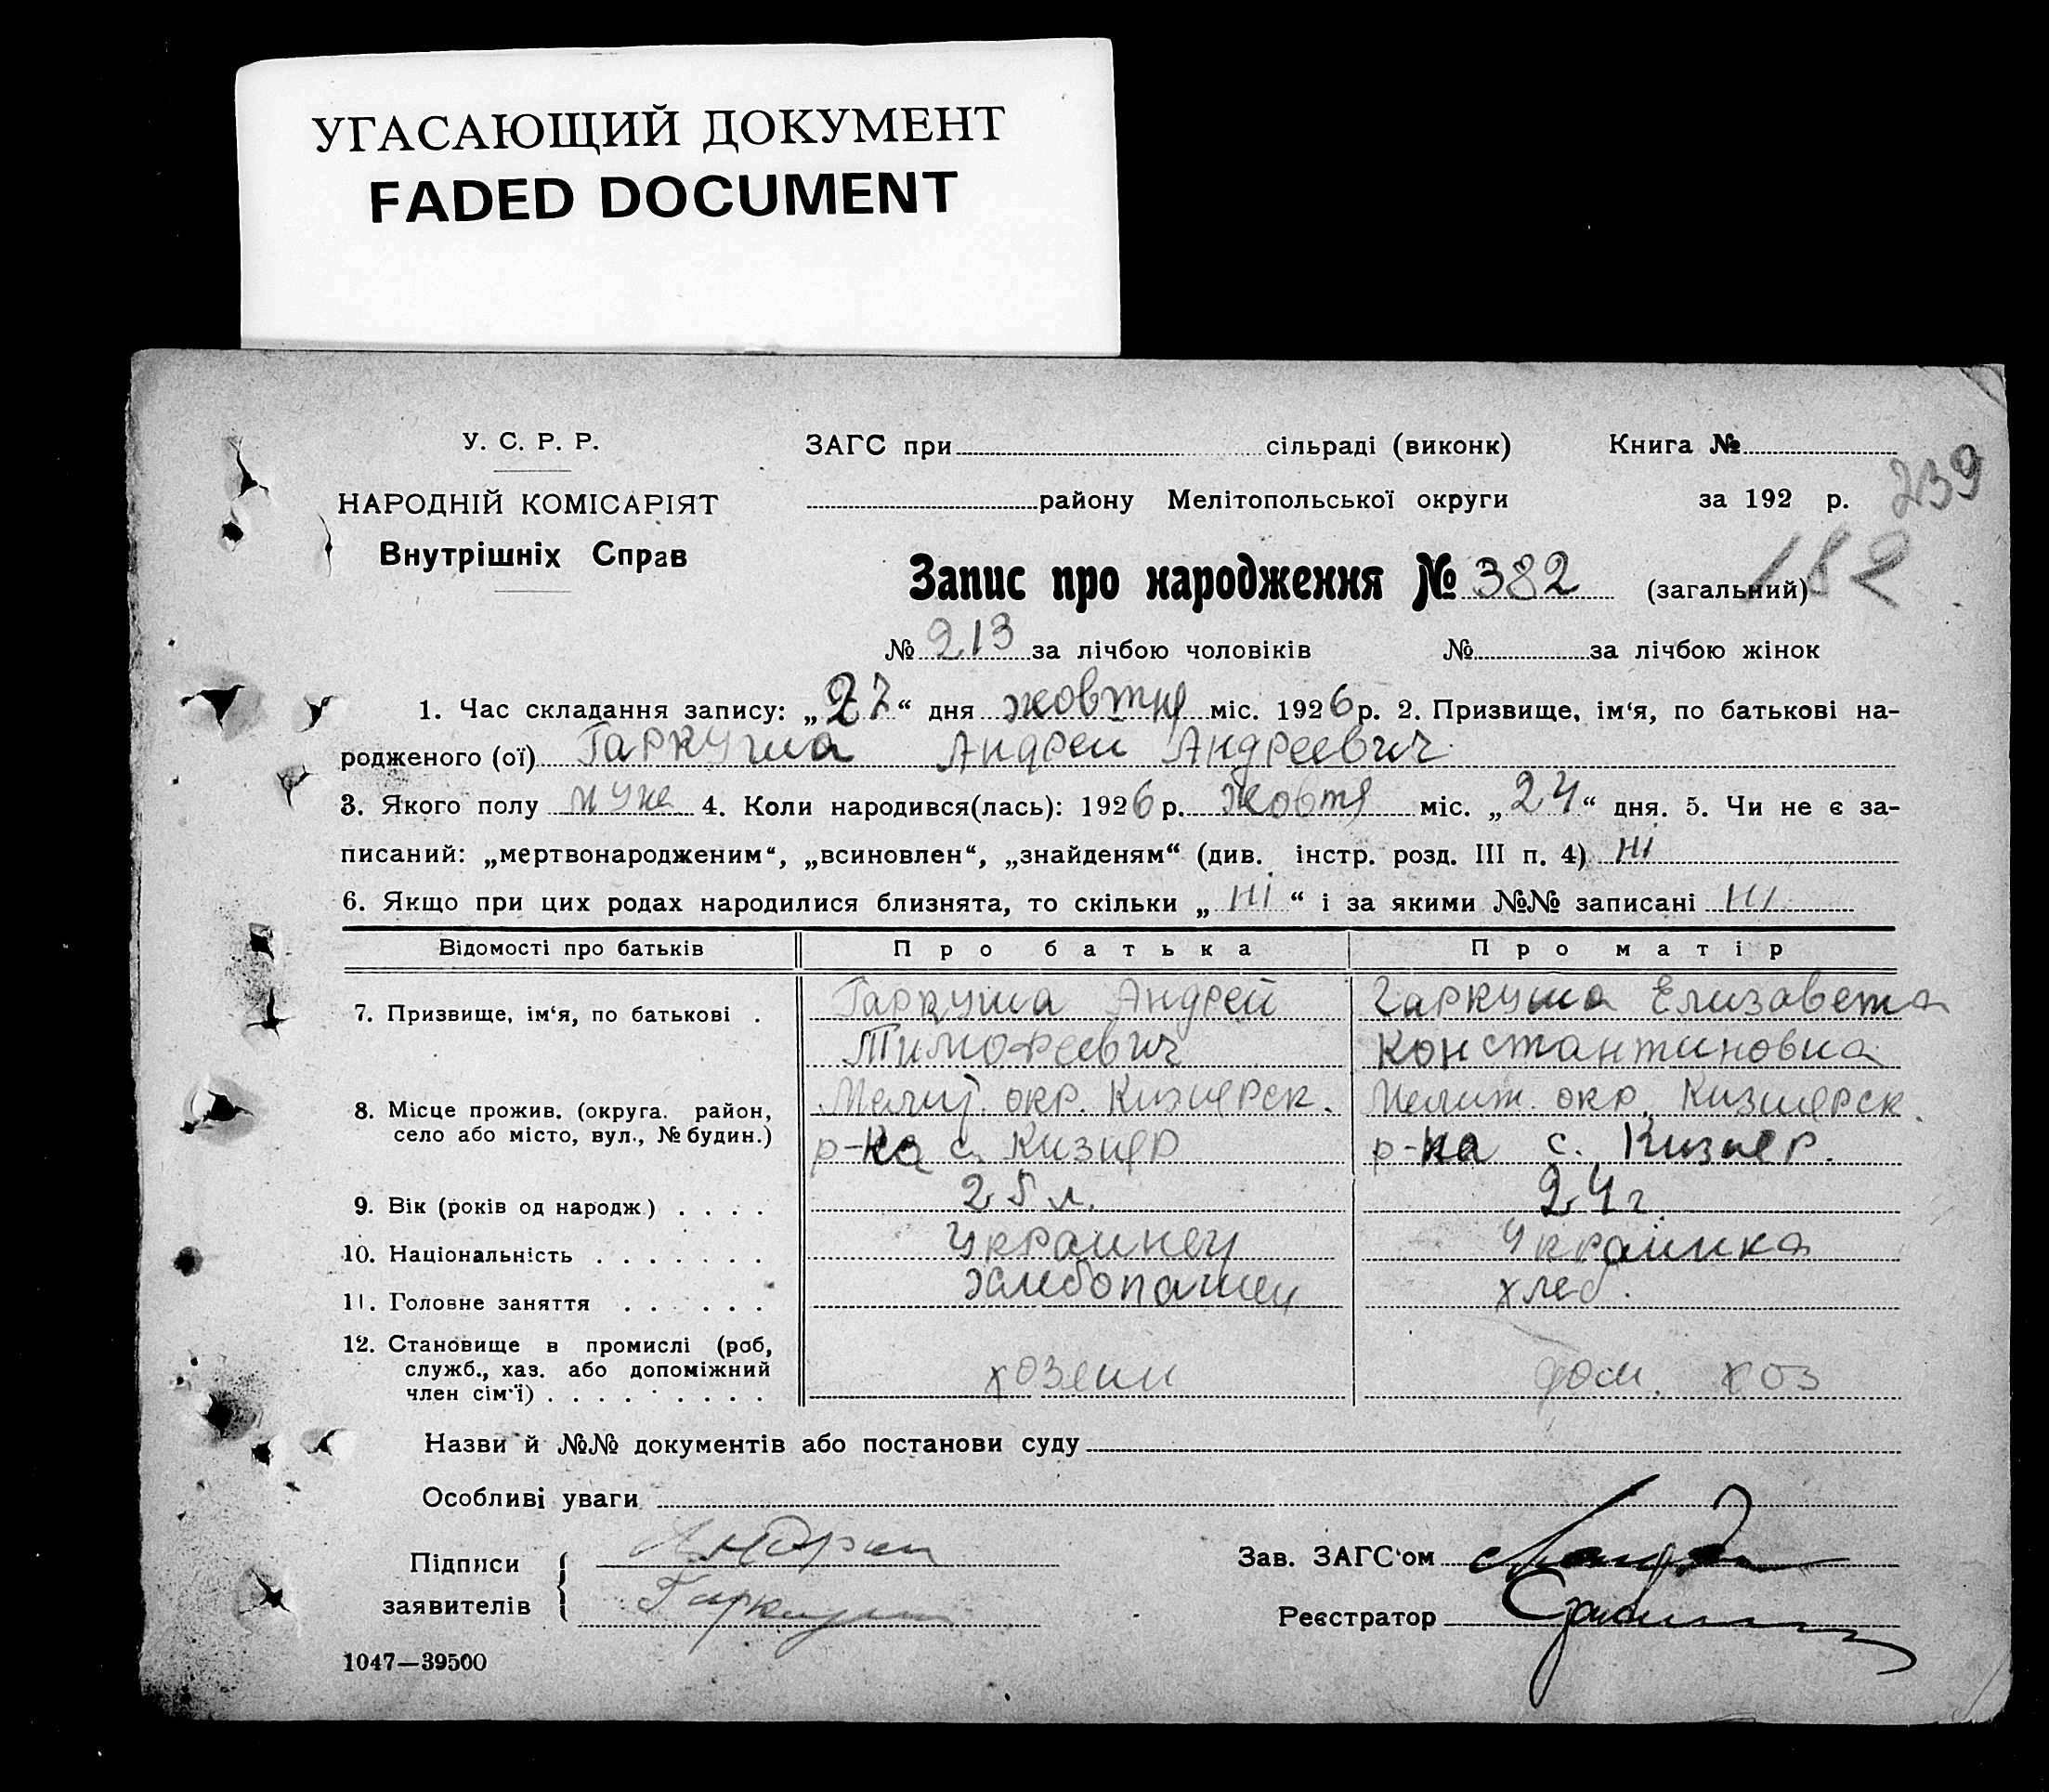 УГАСАЮЩИЙ ДОКУМЕНТ
FADED DOCUMENT
У. С. Р. Р.
НАРОДНІЙ КОМІСАРІЯТ
Внутрішніх Справ
ЗАГС при сільраді (виконк) Книга №
району Мелітопольської округи за 192 р.
239
182
Запис про народження № 382 (загальний)
№ 213 за лічбою чоловіків № за лічбою жінок
1. Час складання запису: „27“ дня жовтня міс. 1926 р. 2. Призвище, ім‘я, по батькові на-
родженого (ої) Гаркуша Андрей Андреевич
3. Якого полу муж 4. Коли народився(лась): 1926 р. жовтя міс. „24“ дня. 5. Чи не є за-
писаний: „мертвонародженим“, „всиновлен“, „знайденям“ (див. інстр. розд. III п. 4) ні
6. Якщо при цих родах народилися близнята, то скільки „ні“ і за якими №№ записані ні
Відомості про батьків Про батька Про матір
7. Призвище, ім‘я, по батькові . Гаркуша Андрей Гаркуша Елизавета
Тимофеевич Константиновна
8. Місце прожив. (округа, район, Мелит. окр. Кизиерск. Мелит. окр. Кизиерск.
село або місто, вул., № будин.) р-на с. Кизиер р-на с. Кизиер.
9. Вік (років од народж.) . . . . 25 л. 24 г.
10. Національність . . . . . . . Украинец Украинка
11. Головне заняття . . . . . . хлебопашец хлеб.
12. Становище в промислі (роб,
служб., хаз. або допоміжний хозеин дом. хоз
член сім‘ї) . . . . . . . . .
Назви й №№ документів або постанови суду
Особливі уваги
Підписи Андрей
заявителів Гаркуша
Зав. ЗАГС‘ом
Реєстратор
1047—39500